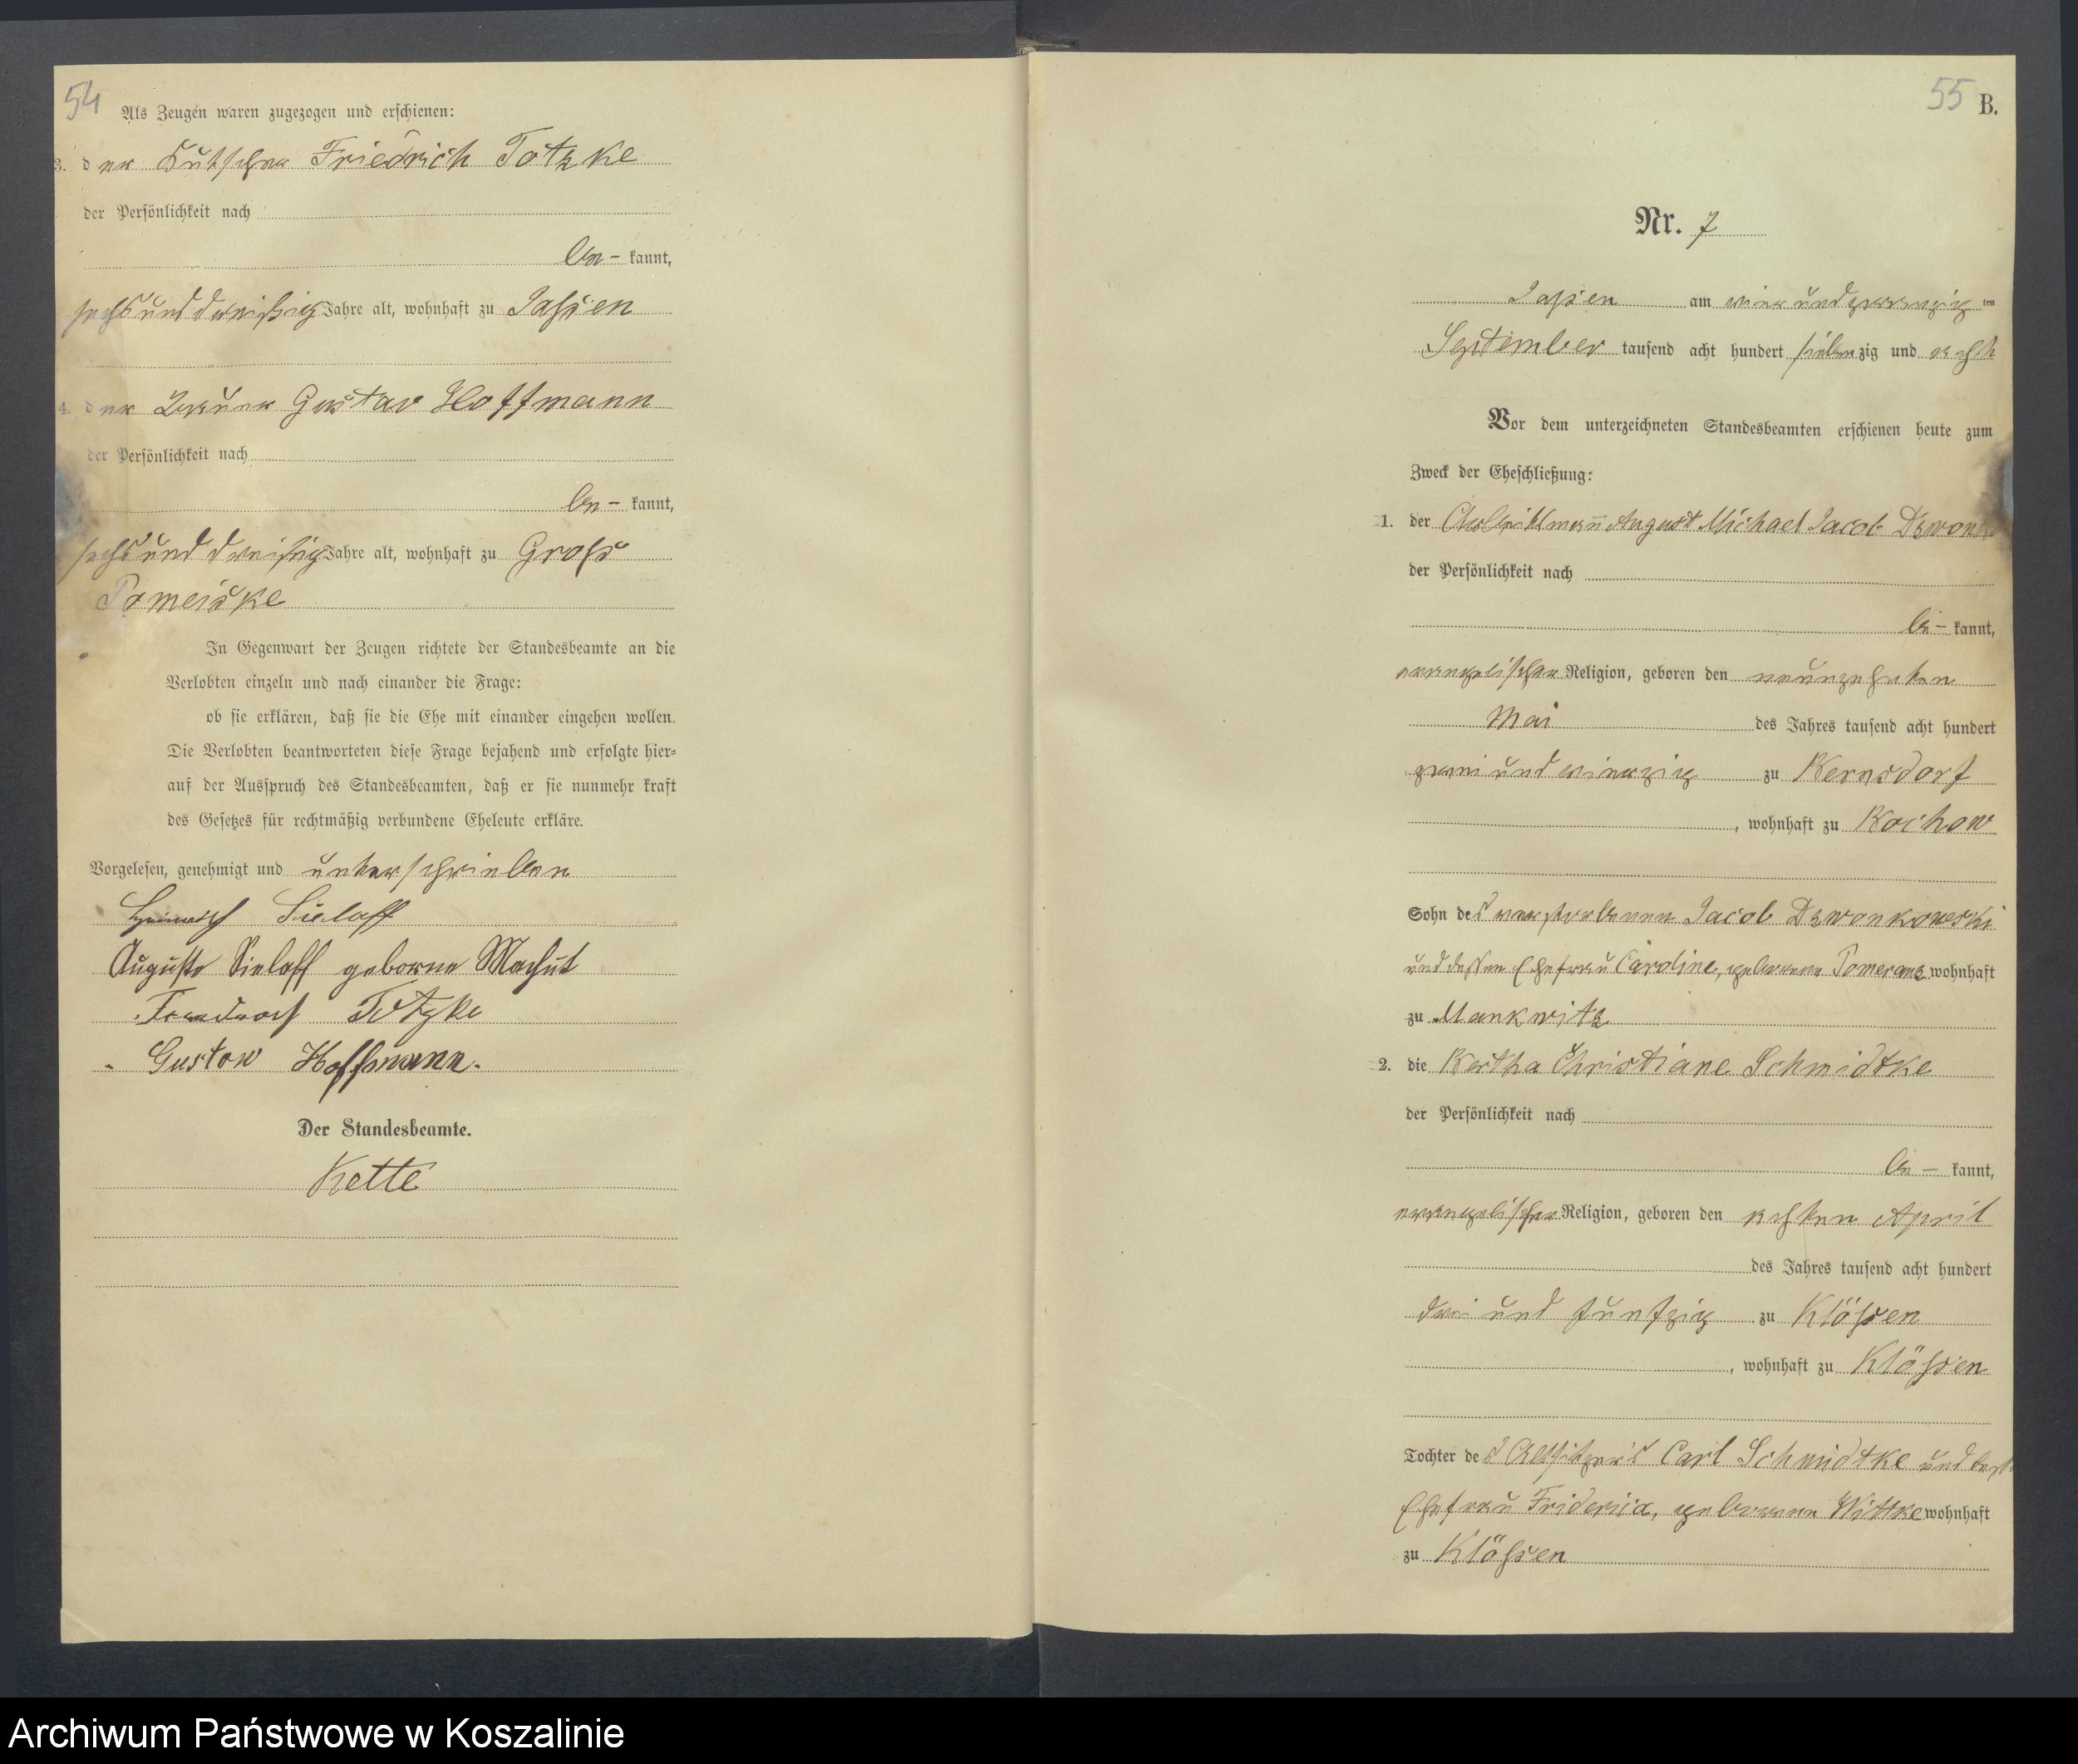 54
Als Zeugen waren zugezogen und erschienen:
3. der Kutscher Friedrich Totzke
der Persönlichkeit nach
be- kannt,
sechsunddreißig Jahre alt, wohnhaft zu Jassen
4. der Bauer Gustav Hoffmann
der Persönlichkeit nach
be- kannt,
sechsunddreißig Jahre alt, wohnhaft zu Gross
Pomeiske
In Gegenwart der Zeugen richtete der Standesbeamte an die
Verlobten einzeln und nach einander die Frage:
ob sie erklären, daß sie die Ehe mit einander eingehen wollen.
Die Verlobten beantworteten diese Frage bejahend und erfolgte hier=
auf der Ausspruch des Standesbeamten, daß er sie nunmehr kraft
des Gesetzes für rechtmäßig verbundene Eheleute erkläre.
Vorgelesen, genehmigt und unterschrieben
Heinrich Sielaff
Auguste Sielaff geborne Machut
Totzke
Gustow Hoffmann.
Der Standesbeamte.
Kette
55 B.
Nr. 7
Jassen am vierundzwanzig ten
September tausend acht hundert siebenzig und acht
Vor dem unterzeichneten Standesbeamten erschienen heute zum
Zweck der Eheschließung:
1. der August Michael Jacob
der Persönlichkeit nach
be- kannt,
evangelischer Religion, geboren den neunzehnten
Mai des Jahres tausend acht hundert
zwei und vierzig zu Kernsdorf
, wohnhaft zu Rochow
Sohn des verstorbenen Jacob Dzwonkowski
und dessen Ehefrau Caroline, geborene Pomeranz wohnhaft
zu Mankwitz
2. die Bertha Christiane Schmidtke
der Persönlichkeit nach
be- kannt,
evangelischer Religion, geboren den achten April
des Jahres tausend acht hundert
drei und funfzig zu Klössen
, wohnhaft zu Klössen
Tochter des Altsitzers Carl Schmidtke und
Ehefrau Friderica, geborene Wittke wohnhaft
zu Klössen
Archiwum Państwowe w Koszalinie